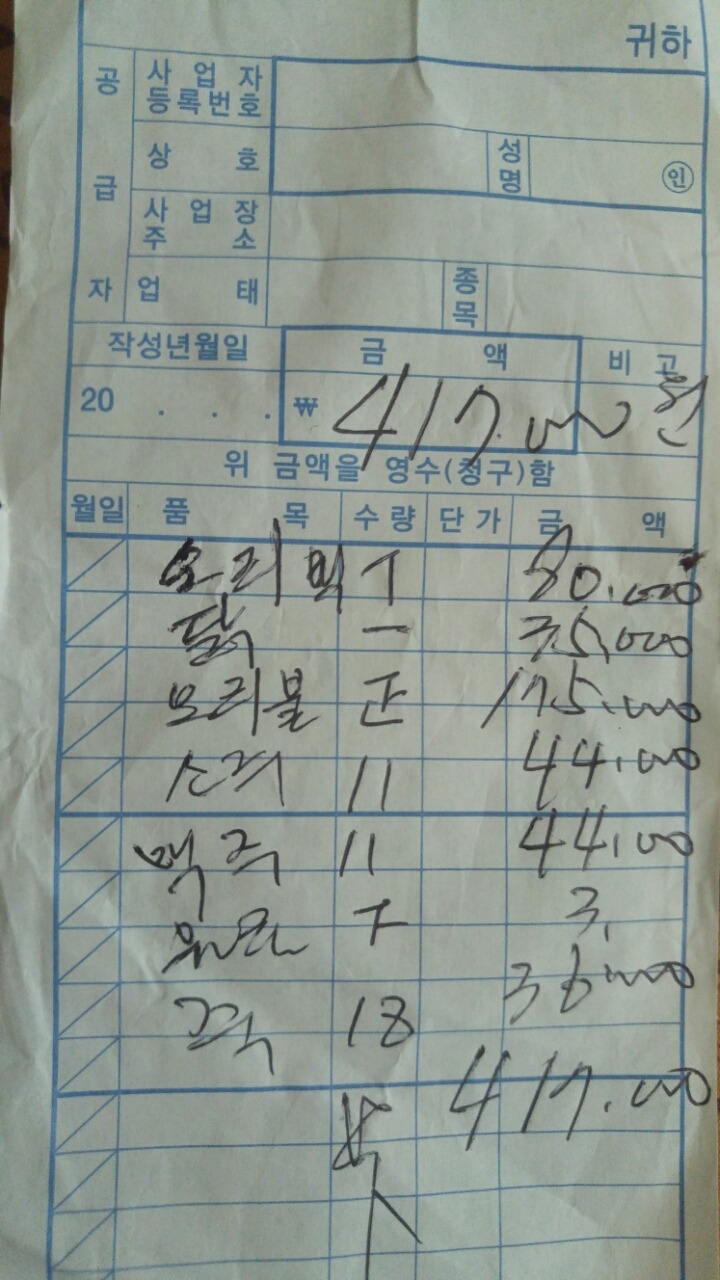 귀하
공급자
사업자등록번호
상호 성명 인
사업장주소
업태 종목
작성년월일 금액 비고
20 . . . ₩ 417.000 원
위 금액을 영수(청구)함
월일 품목 수량 단가 금액
오리 丅 80.000
닭 一 35,000
오리불 正 175.000
소주 11 44.000
맥주 11 44.000
丅 3.
18 36000
417.000